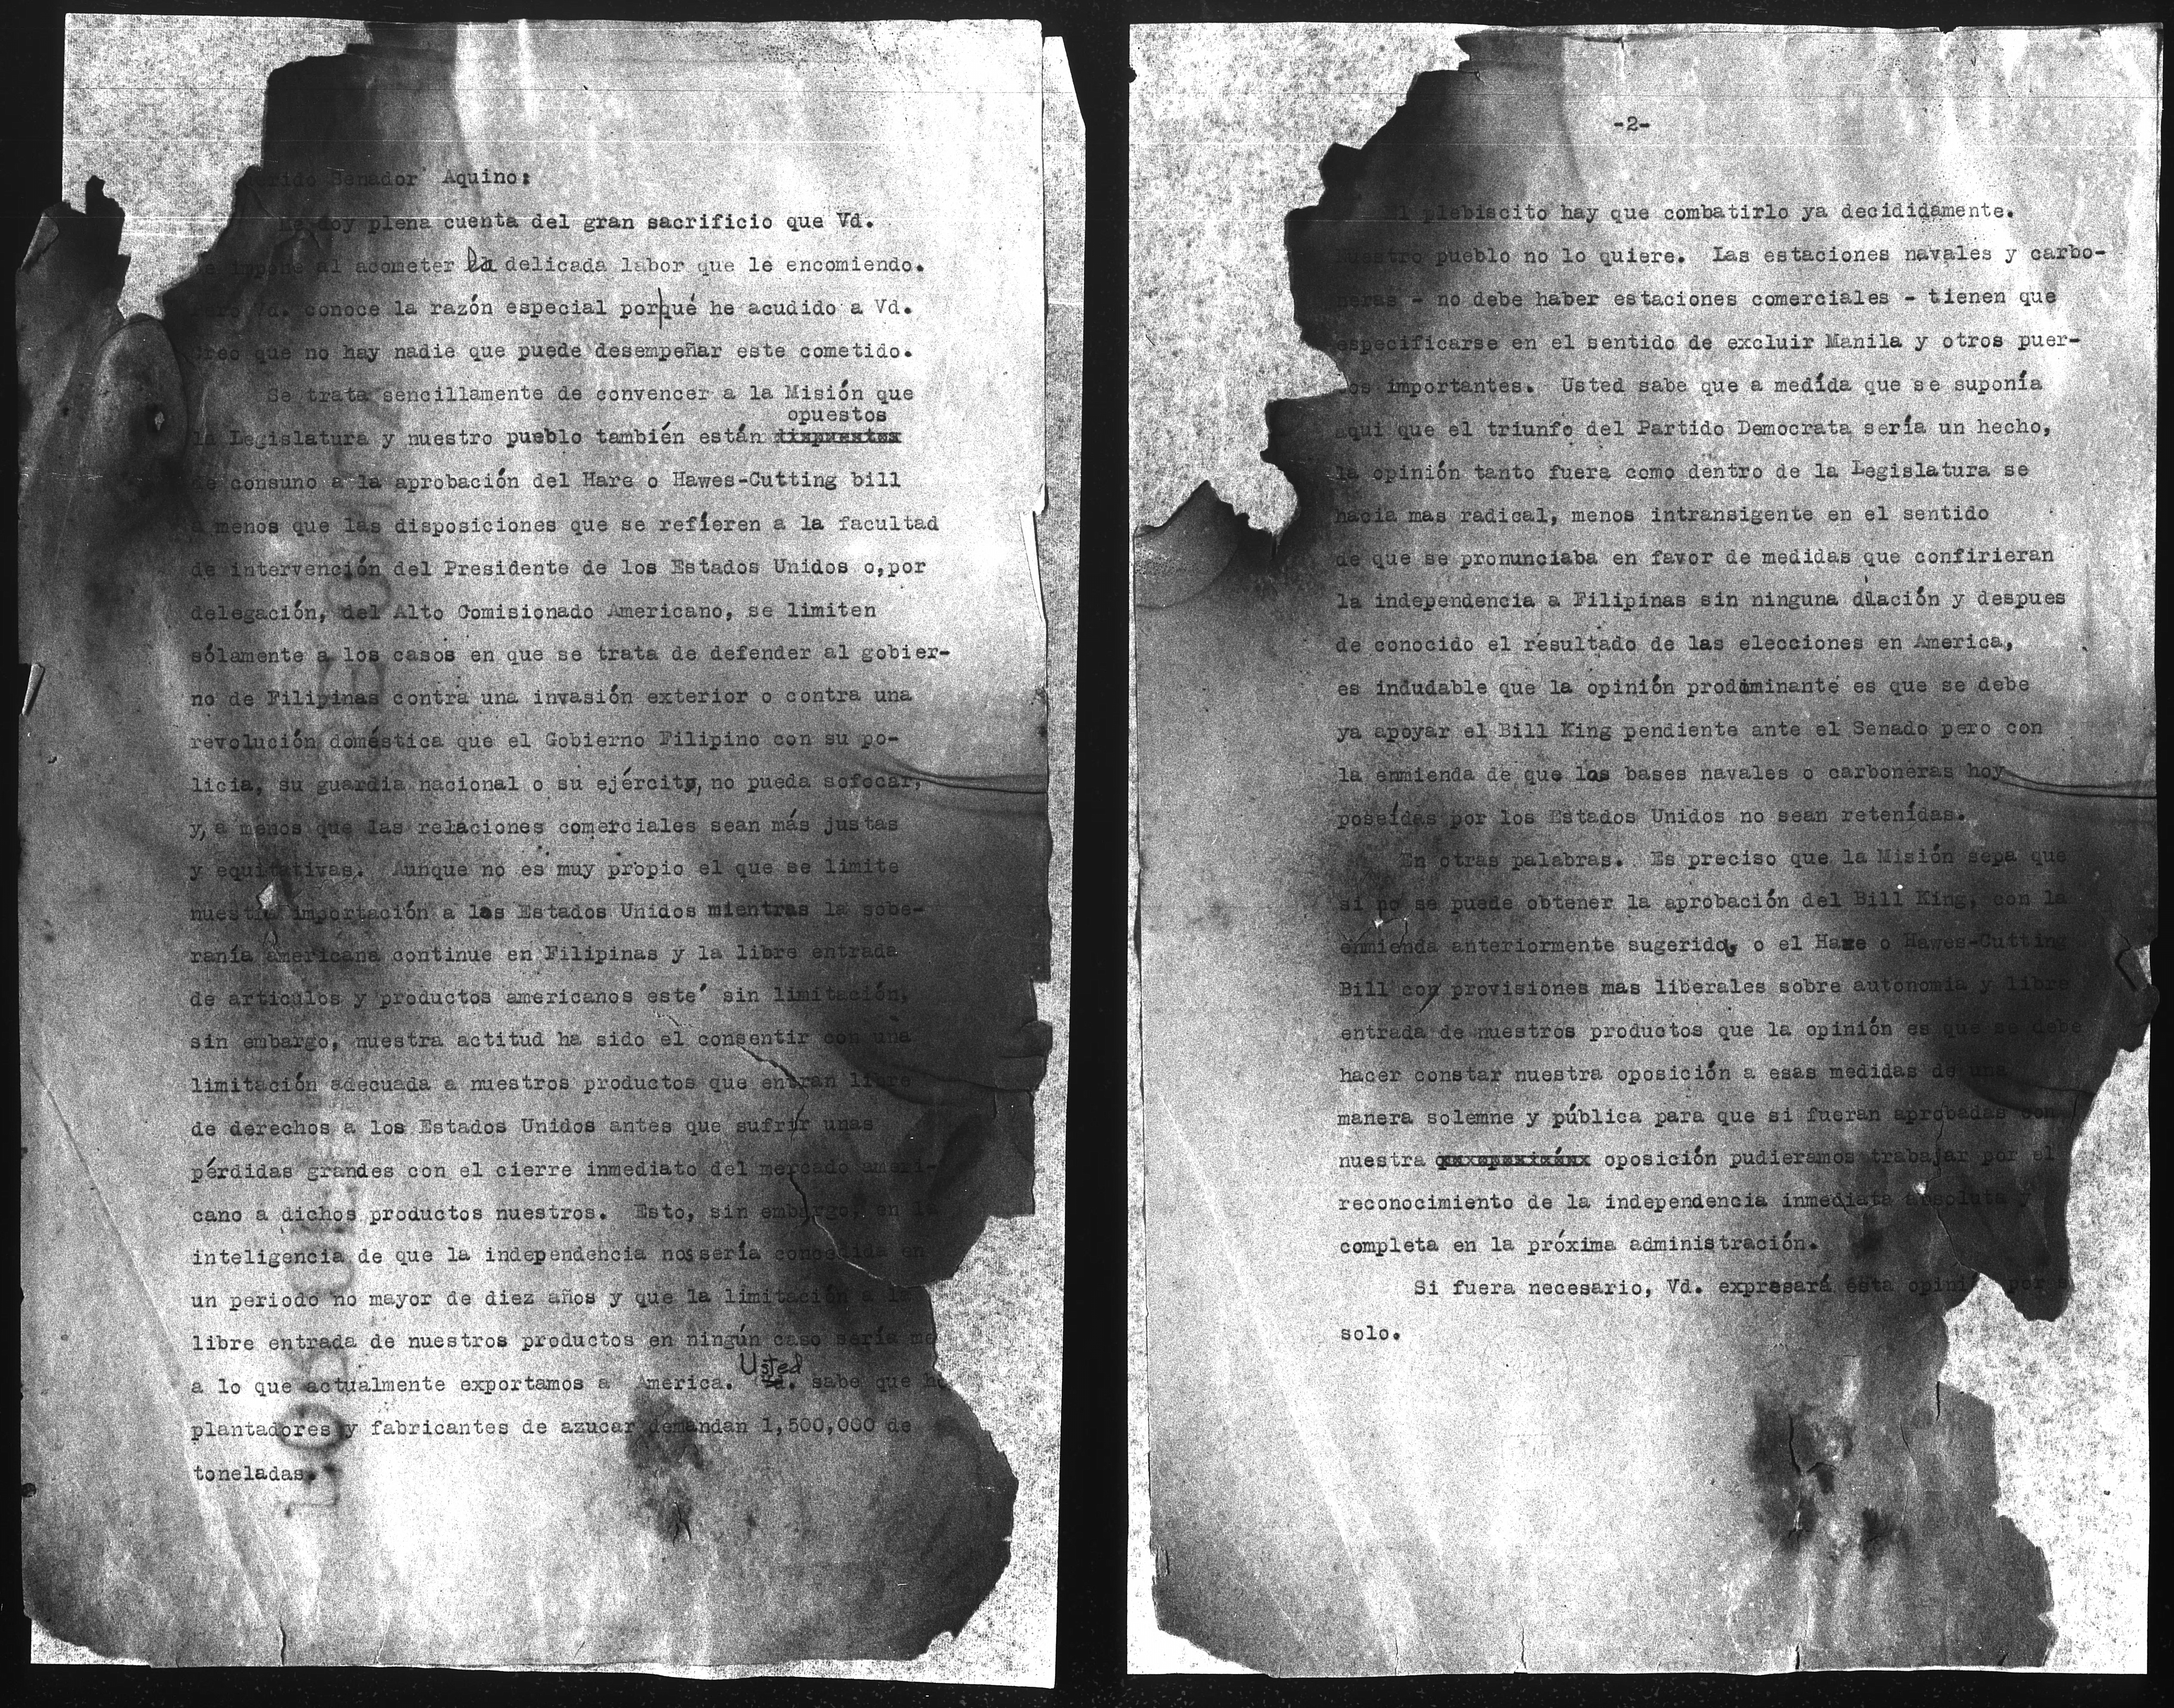 Querido Senador Aquino:
Me doy plena cuenta del gran sacrificio que Vd.
se impone al acometer la delicada labor que le encomiendo.
Pero Vd. conoce la razón especial porqué he acudido a Vd.
Creo que no hay nadie que puede desempeñar este cometido.
Se trata sencillamente de convencer a la Misión que
opuestos
la Legislatura y nuestro pueblo también están
de consuno a la aprobación del Hare o Hawes-Cutting bill
a menos que las disposiciones que se refieren a la facultad
de intervención del Presidente de los Estados Unidos o,por
delegación, del Alto Comisionado Americano, se limiten
sólamente a los casos en que se trata de defender al gobier-
no de Filipinas contra una invasión exterior o contra una
revolución doméstica que el Gobierno Filipino con su po-
licia, su guardia nacional o su ejército, no pueda sofocar,
y, a menos que las relaciones comerciales sean más justas
y equitativas. Aunque no es muy propio el que se limite
nuestra importación a los Estados Unidos mientras la sobe-
ranía americana continue en Filipinas y la libre entrada
de articulos y productos americanos esté sin limitación,
sin embargo, nuestra actitud ha sido el consentir con una
limitación adecuada a nuestros productos que entran libre
de derechos a los Estados Unidos antes que sufrir unas
pérdidas grandes con el cierre inmediato del mercado ameri-
cano a dichos productos nuestros. Esto, sin embargo, en la
inteligencia de que la independencia nos sería concedida en
un periodo no mayor de diez años y que la limitación a la
libre entrada de nuestros productos en ningún caso sería
Usted
a lo que actualmente exportamos a America. sabe que
plantadores y fabricantes de azucar demandan 1,500,000 de
toneladas.
-2-
El plebiscito hay que combatirlo ya decididamente.
Nuestro pueblo no lo quiere. Las estaciones navales y carbo-
neras - no debe haber estaciones comerciales - tienen que
especificarse en el sentido de excluir Manila y otros puer-
tos importantes. Usted sabe que a medída que se suponía
aqui que el triunfo del Partido Democrata sería un hecho,
la opinión tanto fuera como dentro de la Legislatura se
hacia mas radical, menos intransigente en el sentido
de que se pronunciaba en favor de medidas que confirieran
la independencia a Filipinas sin ninguna dilación y despues
de conocido el resultado de las elecciones en America,
es indudable que la opinión prodominante es que se debe
ya apoyar el Bill King pendiente ante el Senado pero con
la enmienda de que las bases navales o carboneras hoy
poseídas por los Estados Unidos no sean retenídas.
En otras palabras. Es preciso que la Misión sepa que
si no se puede obtener la aprobación del Bill King, con la
enmienda anteriormente sugerida, o el Hare o Hawes-Cutting
Bill con provisiones mas liberales sobre autonomia y libre
entrada de nuestros productos que la opinión es que se debe
hacer constar nuestra oposición a esas medidas de una
manera solemne y pública para que si fueran aprobadas con
nuestra oposición pudieramos trabajar por el
reconocimiento de la independencia inmediata absoluta y
completa en la próxima administración.
Si fuera necesario, Vd. expresará esta opinión por
solo.